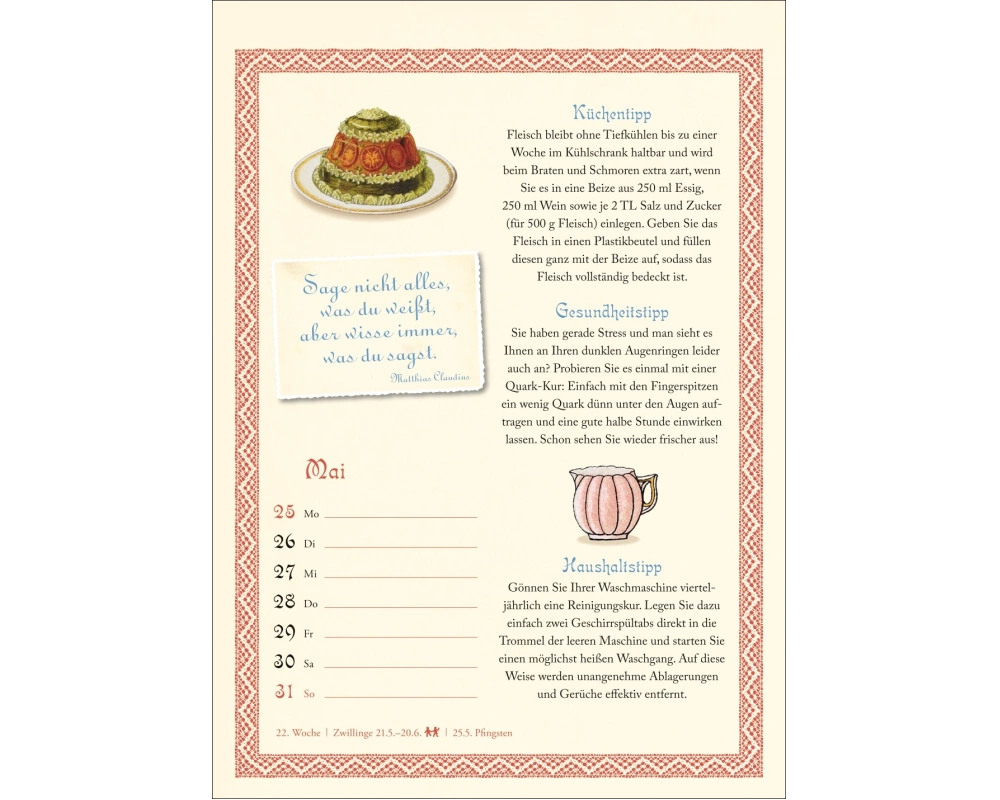 Sage nicht alles,
was du weißt,
aber wisse immer,
was du sagst.
Matthias Claudius
Mai
25 Mo
26 Di
27 Mi
28 Do
29 Fr
30 Sa
31 So
22. Woche | Zwillinge 21.5.–20.6. | 25.5. Pfingsten
Küchentipp
Fleisch bleibt ohne Tiefkühlen bis zu einer
Woche im Kühlschrank haltbar und wird
beim Braten und Schmoren extra zart, wenn
Sie es in eine Beize aus 250 ml Essig,
250 ml Wein sowie je 2 TL Salz und Zucker
(für 500 g Fleisch) einlegen. Geben Sie das
Fleisch in einen Plastikbeutel und füllen
diesen ganz mit der Beize auf, sodass das
Fleisch vollständig bedeckt ist.
Gesundheitstipp
Sie haben gerade Stress und man sieht es
Ihnen an Ihren dunklen Augenringen leider
auch an? Probieren Sie es einmal mit einer
Quark-Kur: Einfach mit den Fingerspitzen
ein wenig Quark dünn unter den Augen auf-
tragen und eine gute halbe Stunde einwirken
lassen. Schon sehen Sie wieder frischer aus!
Haushaltstipp
Gönnen Sie Ihrer Waschmaschine viertel-
jährlich eine Reinigungskur. Legen Sie dazu
einfach zwei Geschirrspültabs direkt in die
Trommel der leeren Maschine und starten Sie
einen möglichst heißen Waschgang. Auf diese
Weise werden unangenehme Ablagerungen
und Gerüche effektiv entfernt.